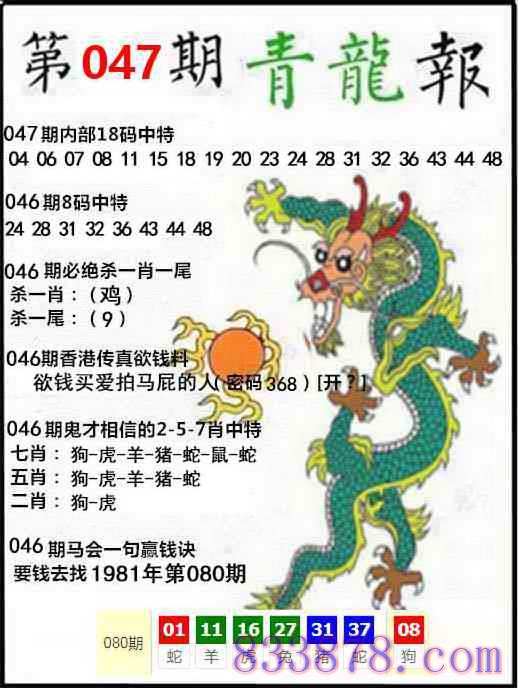 第047期 青龍報
047期内部18码中特
04 06 07 08 11 15 18 19 20 23 24 28 31 32 36 43 44 48
046期8码中特
24 28 31 32 36 43 44 48
046期必绝杀一肖一尾
杀一肖：（鸡）
杀一尾：（9）
046期香港传真欲钱料
欲钱买爱拍马屁的人(密码368)[开?]
046期鬼才相信的2-5-7肖中特
七肖：狗-虎-羊-猪-蛇-鼠-蛇
五肖：狗-虎-羊-猪-蛇
二肖：狗-虎
046期马会一句赢钱诀
要钱去找1981年第080期
080期 01 11 16 27 31 37 08
蛇 羊 虎 兔 猪 蛇 狗
833878.com